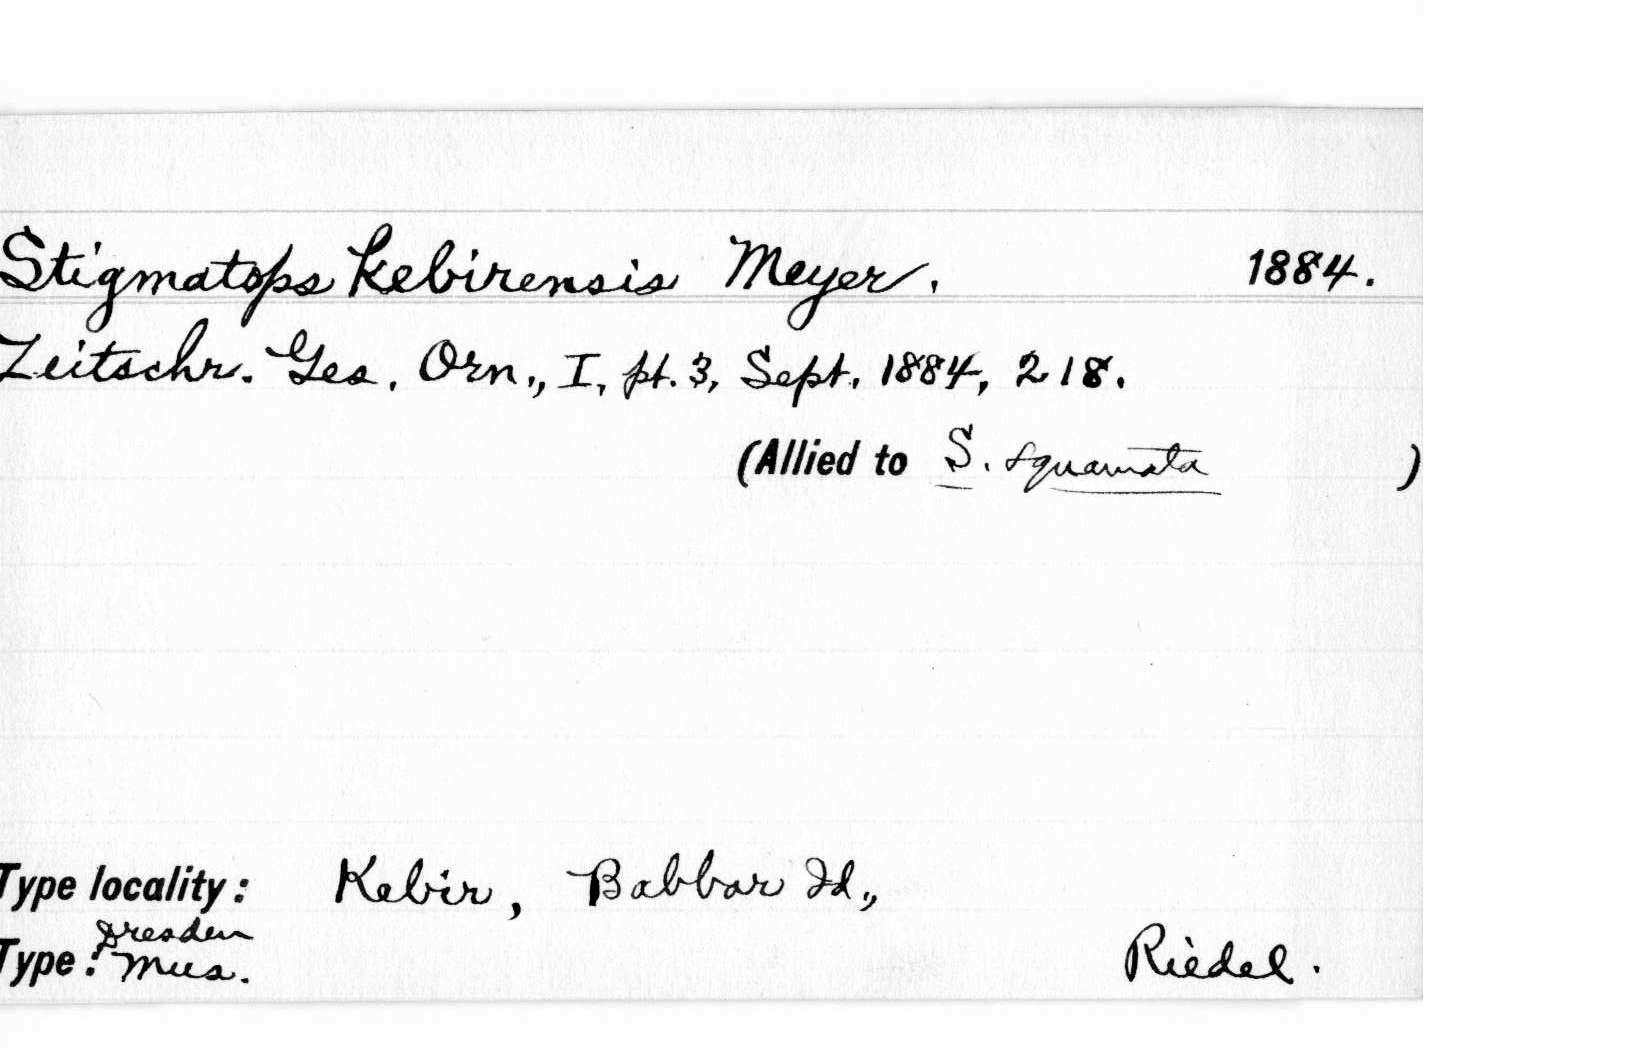 Stigmatops kebirensis Meyer. 1884.
Zeitschr. Ges. Orn., I, pt. 3, Sept. 1884, 218.
(Allied to S. squamata )
Type locality: Kebir, Babbar Id.,
Type: Dresden Mus. Riedel.